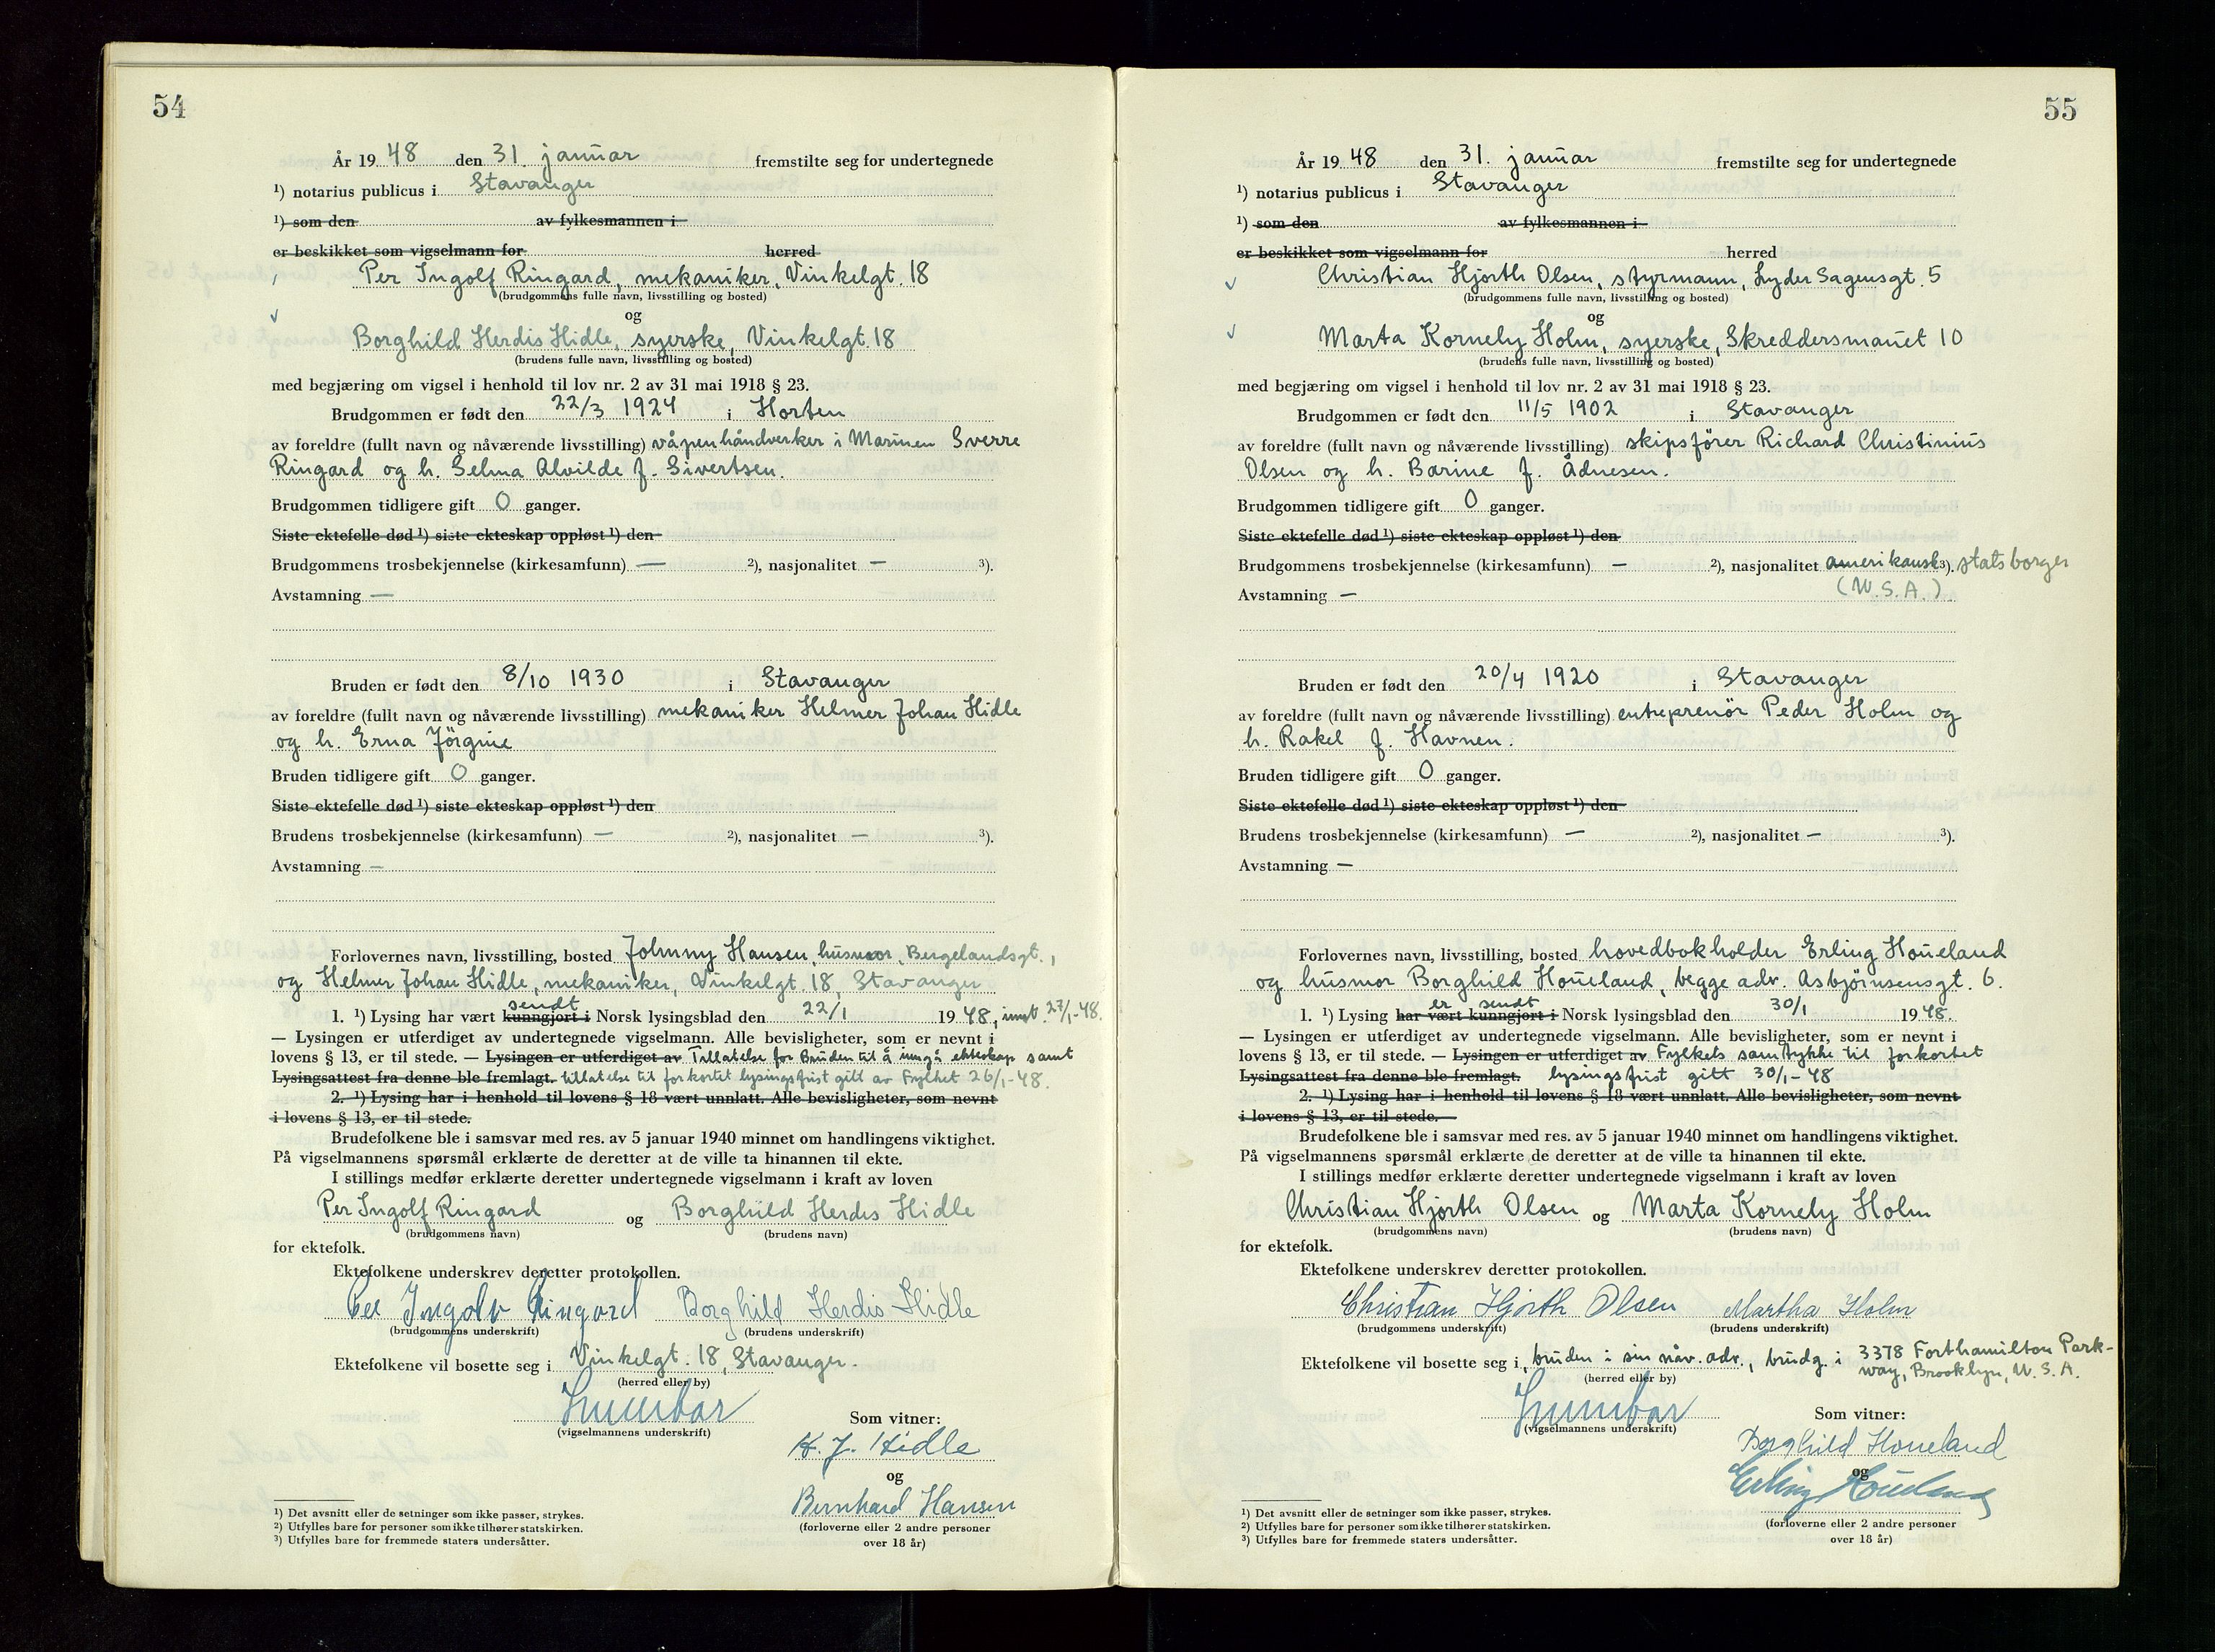 54
År 19 48 den 31. januar fremstilte seg for undertegnede
¹) notarius publicus i Stavanger
¹) som den av fylkesmannen i
er beskikket som vigselmann for herred
Per Ingolf Ringard, mekaniker, Vinkelgt. 18
(brudgommens fulle navn, livsstilling og bosted)
og
Borghild Herdis Hidle, syerske, Vinkelgt. 18
(brudens fulle navn, livsstilling og bosted)
med begjæring om vigsel i henhold til lov nr. 2 av 31 mai 1918 § 23.
Brudgommen er født den 22/3 1924 i Horten
av foreldre (fullt navn og nåværende livsstilling) våpenhåndverker i Marinen Sverre
Ringard og h. Selma Alvilde f. Sivertsen.
Brudgommen tidligere gift 0 ganger.
Siste ektefelle død ¹) siste ekteskap oppløst ¹) den
Brudgommens trosbekjennelse (kirkesamfunn) — ²), nasjonalitet — ³).
Avstamning —
Bruden er født den 8/10 1930 i Stavanger
av foreldre (fullt navn og nåværende livsstilling) mekaniker Helmer Johan Hidle
og h. Erna Jörgine
Bruden tidligere gift 0 ganger.
Siste ektefelle død ¹) siste ekteskap oppløst ¹) den
Brudens trosbekjennelse (kirkesamfunn) — ²), nasjonalitet — ³).
Avstamning —
Forlovernes navn, livsstilling, bosted Johnny Hansen, husmor, Bergelandsgt.,
og Helmer Johan Hidle, mekaniker, Vinkelgt. 18, Stavanger
sendt
1. ¹) Lysing har vært kunngjort i Norsk lysingsblad den 22/1 19 48, innt. 27/1-48.
— Lysingen er utferdiget av undertegnede vigselmann. Alle bevisligheter, som er nevnt i
lovens § 13, er til stede. — Lysingen er utferdiget av Tillatelse for Bruden til å inngå ekteskap samt
Lysingsattest fra denne ble fremlagt. tillatelse til forkortet lysingsfrist gitt av Fylket 26/1-48.
2. ¹) Lysing har i henhold til lovens § 18 vært unnlatt. Alle bevisligheter, som nevnt
i lovens § 13, er til stede.
Brudefolkene ble i samsvar med res. av 5 januar 1940 minnet om handlingens viktighet.
På vigselmannens spørsmål erklærte de deretter at de ville ta hinannen til ekte.
I stillings medfør erklærte deretter undertegnede vigselmann i kraft av loven
Per Ingolf Ringard og Borghild Herdis Hidle
(brudgommens navn) (brudens navn)
for ektefolk.
Ektefolkene underskrev deretter protokollen.
Per Ingolv Ringard Borghild Herdis Hidle
(brudgommens underskrift) (brudens underskrift)
Ektefolkene vil bosette seg i Vinkelgt. 18, Stavanger.
(herred eller by)
(vigselmannens underskrift)
Som vitner:
H. J. Hidle
og
Bernhard Hansen
(forloverne eller 2 andre personer
over 18 år)
¹) Det avsnitt eller de setninger som ikke passer, strykes.
²) Utfylles bare for personer som ikke tilhører statskirken.
³) Utfylles bare for fremmede staters undersåtter.
55
År 19 48 den 31. januar fremstilte seg for undertegnede
¹) notarius publicus i Stavanger
¹) som den av fylkesmannen i
er beskikket som vigselmann for herred
Christian Hjorth Olsen, styrmann, Lyder Sagensgt. 5
(brudgommens fulle navn, livsstilling og bosted)
og
Marta Kornely Holm, syerske, Skreddersmauet 10
(brudens fulle navn, livsstilling og bosted)
med begjæring om vigsel i henhold til lov nr. 2 av 31 mai 1918 § 23.
Brudgommen er født den 11/5 1902 i Stavanger
av foreldre (fullt navn og nåværende livsstilling) skipsförer Richard Christinius
Olsen og h. Barine f. Ådnesen.
Brudgommen tidligere gift 0 ganger.
Siste ektefelle død ¹) siste ekteskap oppløst ¹) den
Brudgommens trosbekjennelse (kirkesamfunn) — ²), nasjonalitet amerikansk ³). statsborger
Avstamning — (U.S.A.)
Bruden er født den 20/4 1920 i Stavanger
av foreldre (fullt navn og nåværende livsstilling) entreprenör Peder Holm og
h. Rakel f. Havnen.
Bruden tidligere gift 0 ganger.
Siste ektefelle død ¹) siste ekteskap oppløst ¹) den
Brudens trosbekjennelse (kirkesamfunn) — ²), nasjonalitet — ³).
Avstamning —
Forlovernes navn, livsstilling, bosted hovedbokholder Erling Houeland
og husmor Borghild Houeland, begge adr. Asbjörnsensgt. 6.
er sendt
1. ¹) Lysing har vært kunngjort i Norsk lysingsblad den 30/1 19 48.
— Lysingen er utferdiget av undertegnede vigselmann. Alle bevisligheter, som er nevnt i
lovens § 13, er til stede. — Lysingen er utferdiget av Fylkets samtykke til forkortet
Lysingsattest fra denne ble fremlagt. lysingsfrist gitt 30/1-48
2. ¹) Lysing har i henhold til lovens § 18 vært unnlatt. Alle bevisligheter, som nevnt
i lovens § 13, er til stede.
Brudefolkene ble i samsvar med res. av 5 januar 1940 minnet om handlingens viktighet.
På vigselmannens spørsmål erklærte de deretter at de ville ta hinannen til ekte.
I stillings medfør erklærte deretter undertegnede vigselmann i kraft av loven
Christian Hjorth Olsen og Marta Kornely Holm
(brudgommens navn) (brudens navn)
for ektefolk.
Ektefolkene underskrev deretter protokollen.
Christian Hjorth Olsen Martha Holm
(brudgommens underskrift) (brudens underskrift)
Ektefolkene vil bosette seg i bruden i sin nåv. adr., brudg. i 3378 Forthamilton Park-
way, Brooklyn, U.S.A.
(herred eller by)
(vigselmannens underskrift)
Som vitner:
Borghild Houeland
og
Erling Houeland
(forloverne eller 2 andre personer
over 18 år)
¹) Det avsnitt eller de setninger som ikke passer, strykes.
²) Utfylles bare for personer som ikke tilhører statskirken.
³) Utfylles bare for fremmede staters undersåtter.